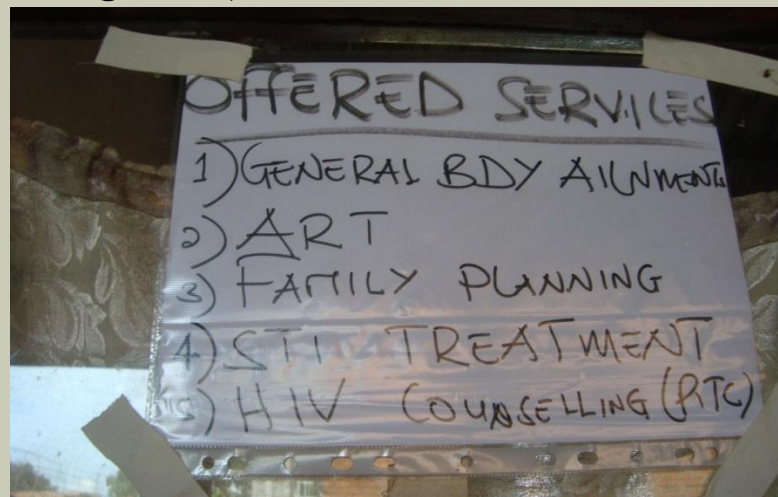 OFFERED SERVICES
1) GENERAL BDY AILNMENTS
2) ART
3) FAMILY PLANNING
4) STI TREATMENT
5) HIV COUNSELLING (RTC)